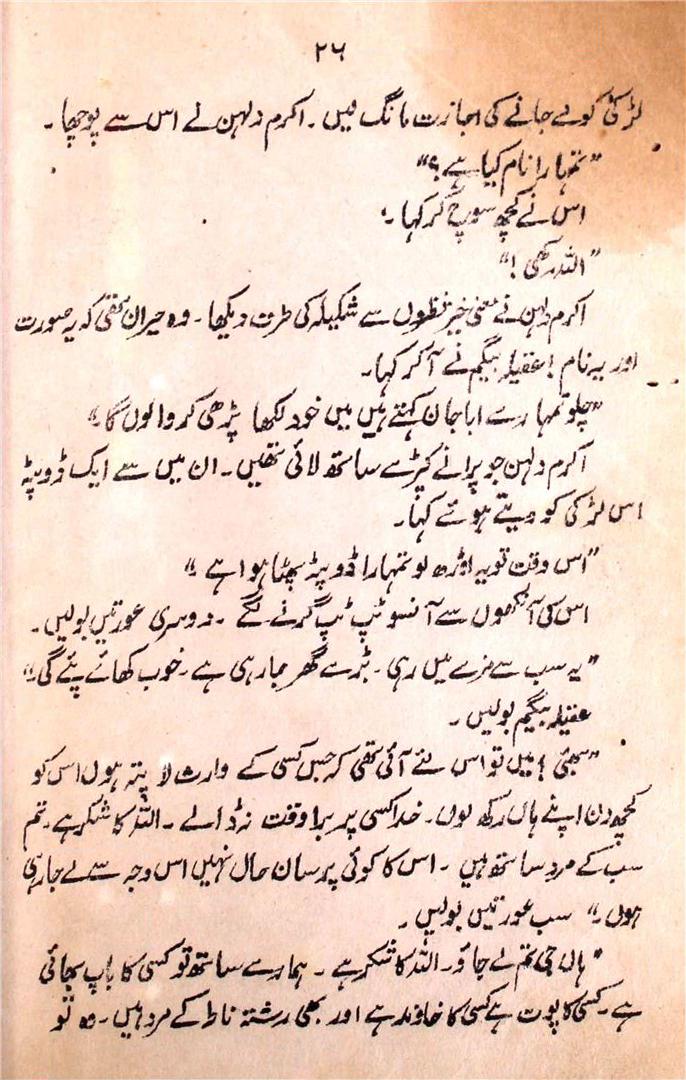 ۲۶
لڑکی کو لے جانے کی اجازت مانگ لیں ۔ اکرم دلہن نے اس سے پوچھا ۔
"تمہارا نام کیا ہے ؟"
اس نے کچھ سوچ کر کہا ۔
"اللہ رکھی !"
اکرم دلہن نے معنی خیز نظروں سے شکیلہ کی طرف دیکھا ۔ وہ حیران تھی کہ یہ صورت
اور یہ نام ! عقیلہ بیگم نے آ کر کہا ۔
"چلو تمہارے ابا جان کہتے ہیں میں خود لکھا پڑھی کروا لوں گا ۔"
اکرم دلہن جو پرانے کپڑے ساتھ لائی تھیں ۔ ان میں سے ایک ڈوپٹہ
اس لڑکی کو دیتے ہوئے کہا ۔
"اس وقت تو یہ اوڑھ لو تمہارا ڈوپٹہ پھٹا ہوا ہے ۔"
اس کی آنکھوں سے آنسو ٹپ ٹپ گرنے لگے ۔ دوسری عورتیں بولیں ۔
"یہ سب سے مزے میں رہی ۔ بڑے گھر جا رہی ہے ۔ خوب کھائے پئے گی ۔"
عقیلہ بیگم بولیں ۔
"بھئی ! میں تو اس لئے آئی تھی کہ جس کسی کے وارث لا پتہ ہوں اس کو
کچھ دن اپنے ہاں رکھ لوں ۔ خدا کسی پر برا وقت نہ ڈالے ۔ اللہ کا شکر ہے ۔ تم
سب کے مرد ساتھ ہیں ۔ اس کا کوئی پرسان حال نہیں اس وجہ سے لے جا رہی
ہوں ۔" سب عورتیں بولیں ۔
"ہاں جی تم لے جاؤ ۔ اللہ کا شکر ہے ۔ ہمارے ساتھ تو کسی کا باپ بھائی
ہے ۔ کسی کا پوت ہے کسی کا خاوند ہے اور بھی رشتہ ناطے کے مرد ہیں ۔ وہ تو